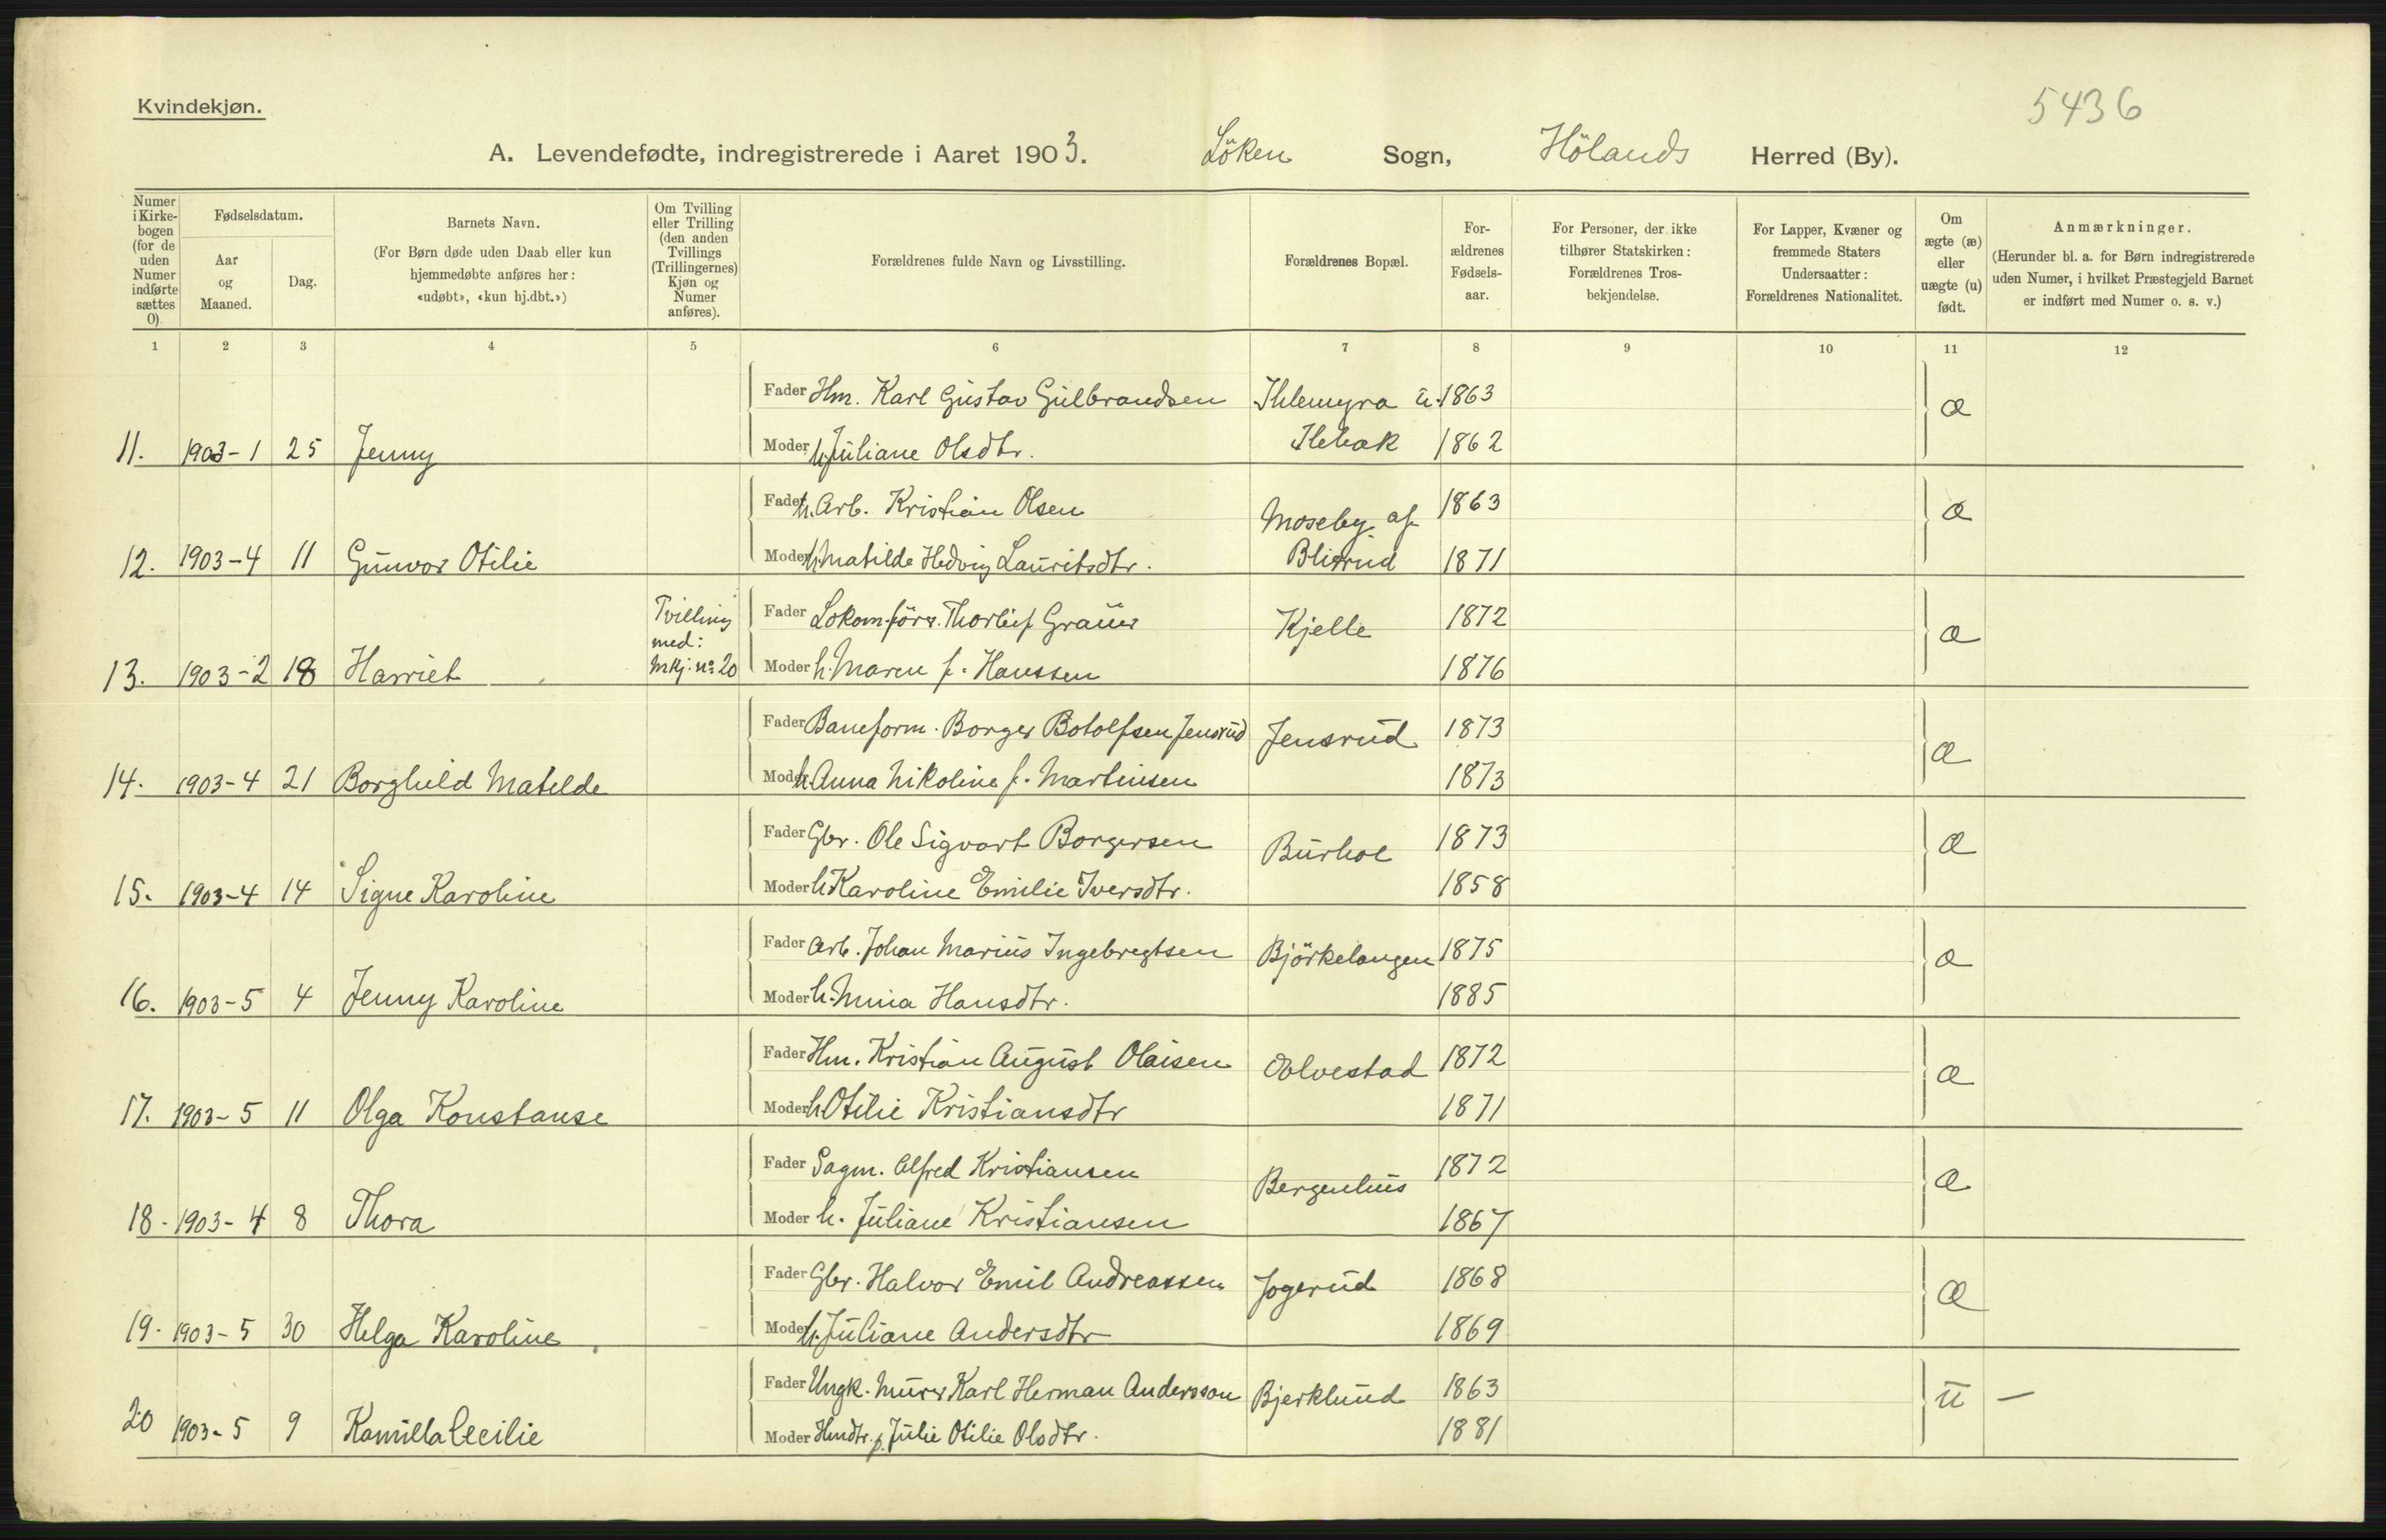 Kvindekjøn.
5436
A. Levendefødte, indregistrerede i Aaret 1903. Löken Sogn, Hölands Herred (By).
Numer i Kirkebogen (for de uden Numer indførte sættes 0).
Fødselsdatum.
Aar og Maaned.
Dag.
Barnets Navn.
(For Børn døde uden Daab eller kun hjemmedøbte anføres her: «udøbt», «kun hj.dbt.»)
Om Tvilling eller Trilling (den anden Tvillings (Trillingernes) Kjøn og Numer anføres).
Forældrenes fulde Navn og Livsstilling.
Forældrenes Bopæl.
Forældrenes Fødselsaar.
For Personer, der ikke tilhører Statskirken: Forældrenes Trosbekjendelse.
For Lapper, Kvæner og fremmede Staters Undersaatter: Forældrenes Nationalitet.
Om ægte (æ) eller uægte (u) født.
Anmærkninger.
(Herunder bl. a. for Børn indregistrerede uden Numer, i hvilket Præstegjeld Barnet er indført med Numer o. s. v.)
1 2 3 4 5 6 7 8 9 10 11 12
Fader Hm. Karl Gustav Gulbrandsen 1863 æ
11. 1903-1 25 Jenny Moder h. Juliane Olsdtr. 1862
Fader h. Arb. Kristian Olsen Moseby af 1863 æ
12. 1903-4 11 Gunvor Otilie Moder h. Matilde Hedvig Lauritsdtr. 1871
Tvilling med: Mkj. no 20 Fader Lokom.förer. Thorleif Grauer Kjelle 1872 æ
13. 1903-2 18 Harriet Moder h. Maren f. Hanssen 1876
Fader Baneform. Borger Botolfsen Jensrud Jensrud 1873 æ
14. 1903-4 21 Borghild Matilde Moder h. Anna Nikoline f. Martinsen 1873
Fader Gbr. Ole Sigvart Borgersen Burhol 1873 æ
15. 1903-4 14 Signe Karoline Moder h. Karoline Emilie Iversdtr. 1858
Fader Arb. Johan Marius Ingebregtsen Björkelangen 1875 æ
16. 1903-5 4 Jenny Karoline Moder h. Mina Hansdtr. 1885
Fader Hm. Kristian August Olaisen 1872 æ
17. 1903-5 11 Olga Konstanse Moder h. Otilie Kristiansdtr 1871
Fader Sagm. Alfred Kristiansen Bergenhus 1872 æ
18. 1903-4 8 Thora Moder h. Juliane Kristiansen 1867
Fader Gbr. Halvor Emil Andreassen Jogerud 1868 æ
19. 1903-5 30 Helga Karoline Moder h. Juliane Andersdtr 1869
Fader Ungk. Murer Karl Herman Andersson Bjerklund 1863 u —
20 1903-5 9 Kamilla Cecilie Moder Hmdtr. p. Julie Otilie Olsdtr. 1881